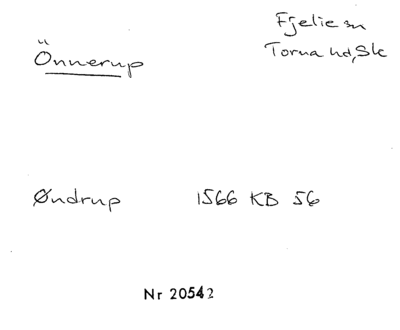 Fjelie sn
Önnerup
Torna hd, Sk
Øndrup 1566 KB 56
Nr 20542